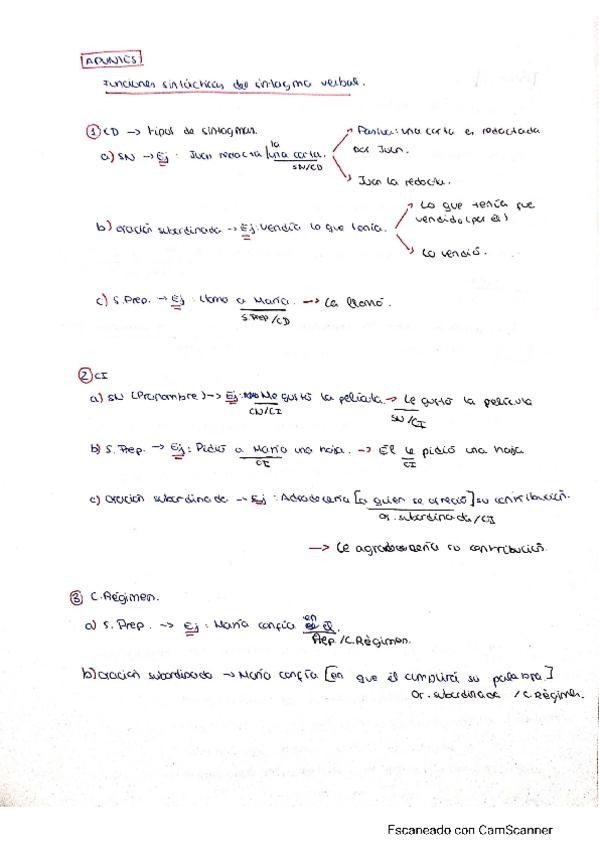 APUNTES
Funciones sintácticas del sintagma verbal.
① CD → tipos de sintagmas.
la
a) SN → Ej: Juan redacta una carta.
SN/CD
Pasiva: una carta es redactada
por Juan.
Juan la redacta.
b) oración subordinada → Ej: vendía lo que tenía.
Lo que tenía fue
vendido (por él)
Lo vendió.
c) S.Prep. → Ej: Llamo a María. → La llamó.
S.Prep/CD
② CI
a) SN (Pronombre) → Ej: Me gustó la película → Le gustó la película
CN/CI
SN/CI
b) S. Prep. → Ej: Pidió a María una hoja. → Él le pidió una hoja
CI
CI
c) oración subordinada → Ej: Agradecería [a quien se ofreció] su contribución.
Or. subordinada/CI
→ Le agradecería su contribución.
③ C.Régimen.
a) S. Prep. → Ej: María confía en él.
Prep/C.Régimen.
b) oración subordinada → María confía [en que él cumplirá su palabra]
Or. subordinada /C.Régimen.
Escaneado con CamScanner